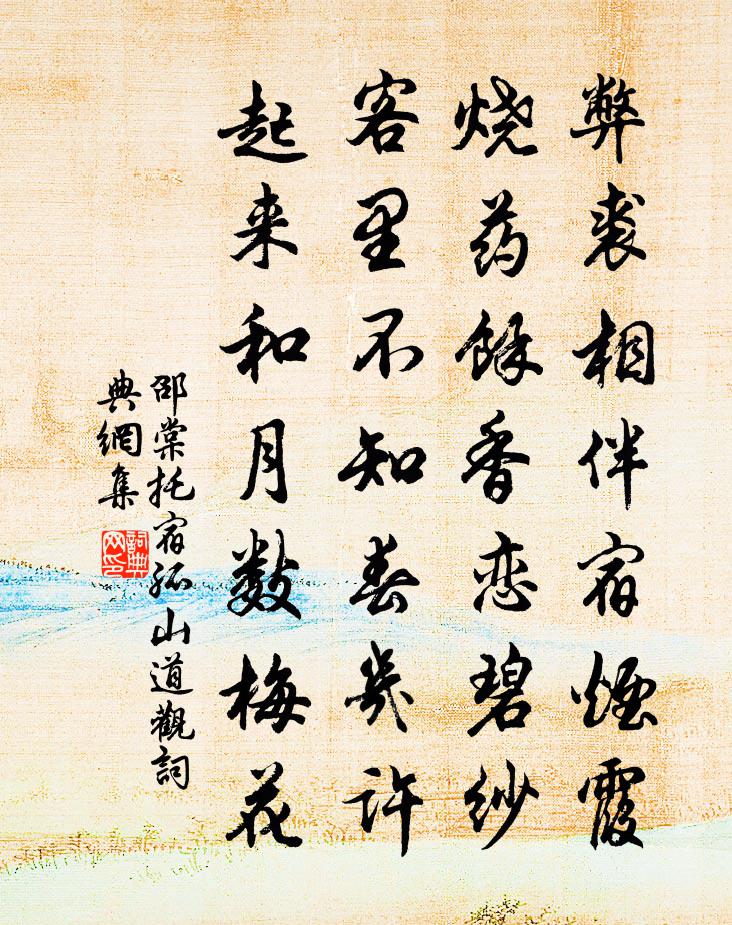 弊裘相伴宿煙霞
烧药餘香恋碧纱
客里不知春幾许
起来和月数梅花
邵棠托宿孤山道觀詞
典網集
詞典
网印